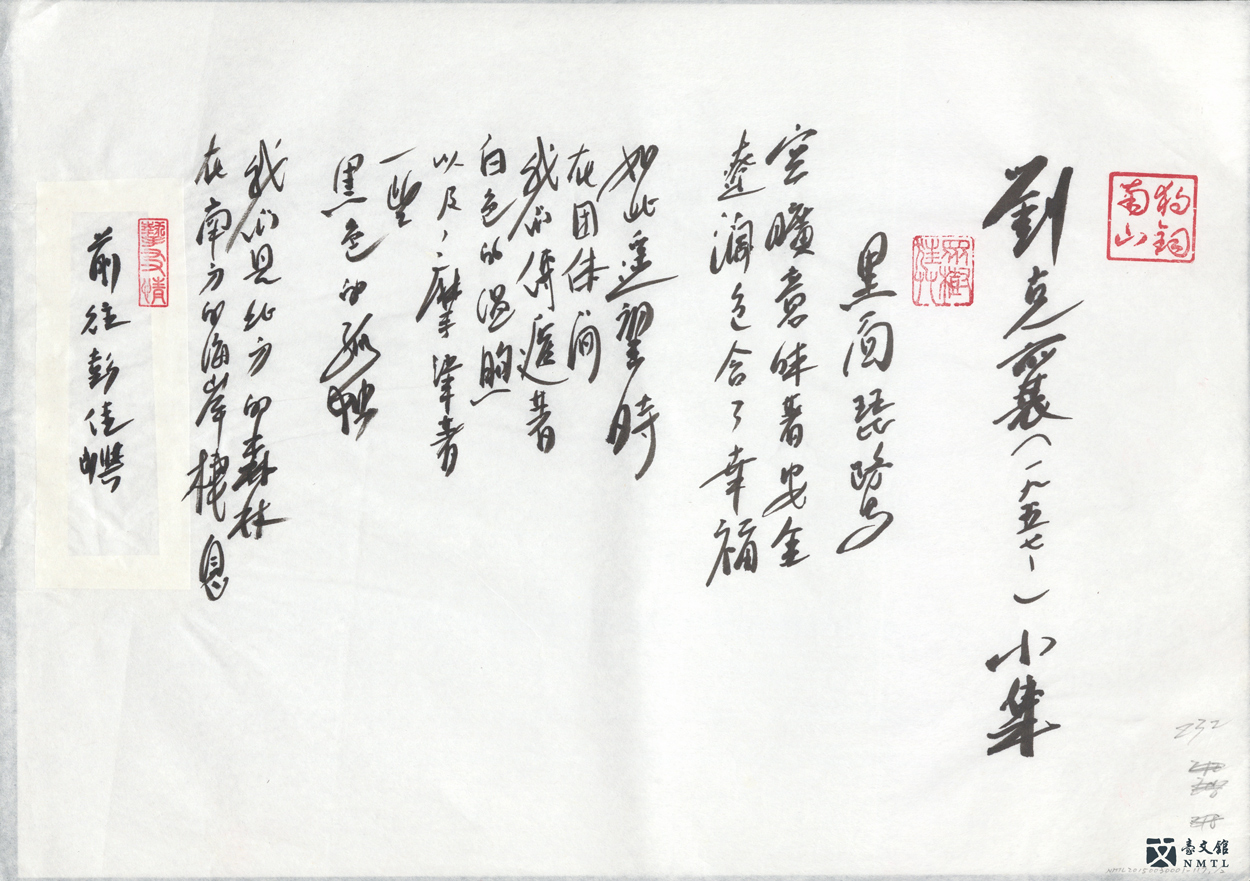 劉克襄(一九五七—)小集
黑面琵鷺
空曠意味著安全
遼濶包含了幸福
如此遙望時
在团体间
我们傳遞著
白色的溫煦
以及,摩挲著
一些
黑色的孤獨
我们是北方的森林
在南方的海岸棲息
摯友情
前往彭佳嶼
232
臺文館
NMTL